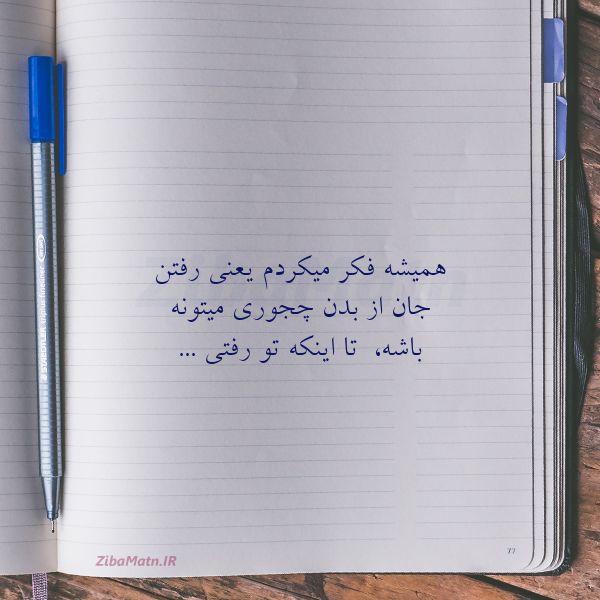 همیشه فکر میکردم یعنی رفتن
جان از بدن چجوری میتونه
باشه، تا اینکه تو رفتی ...
ZibaMatn.IR
77